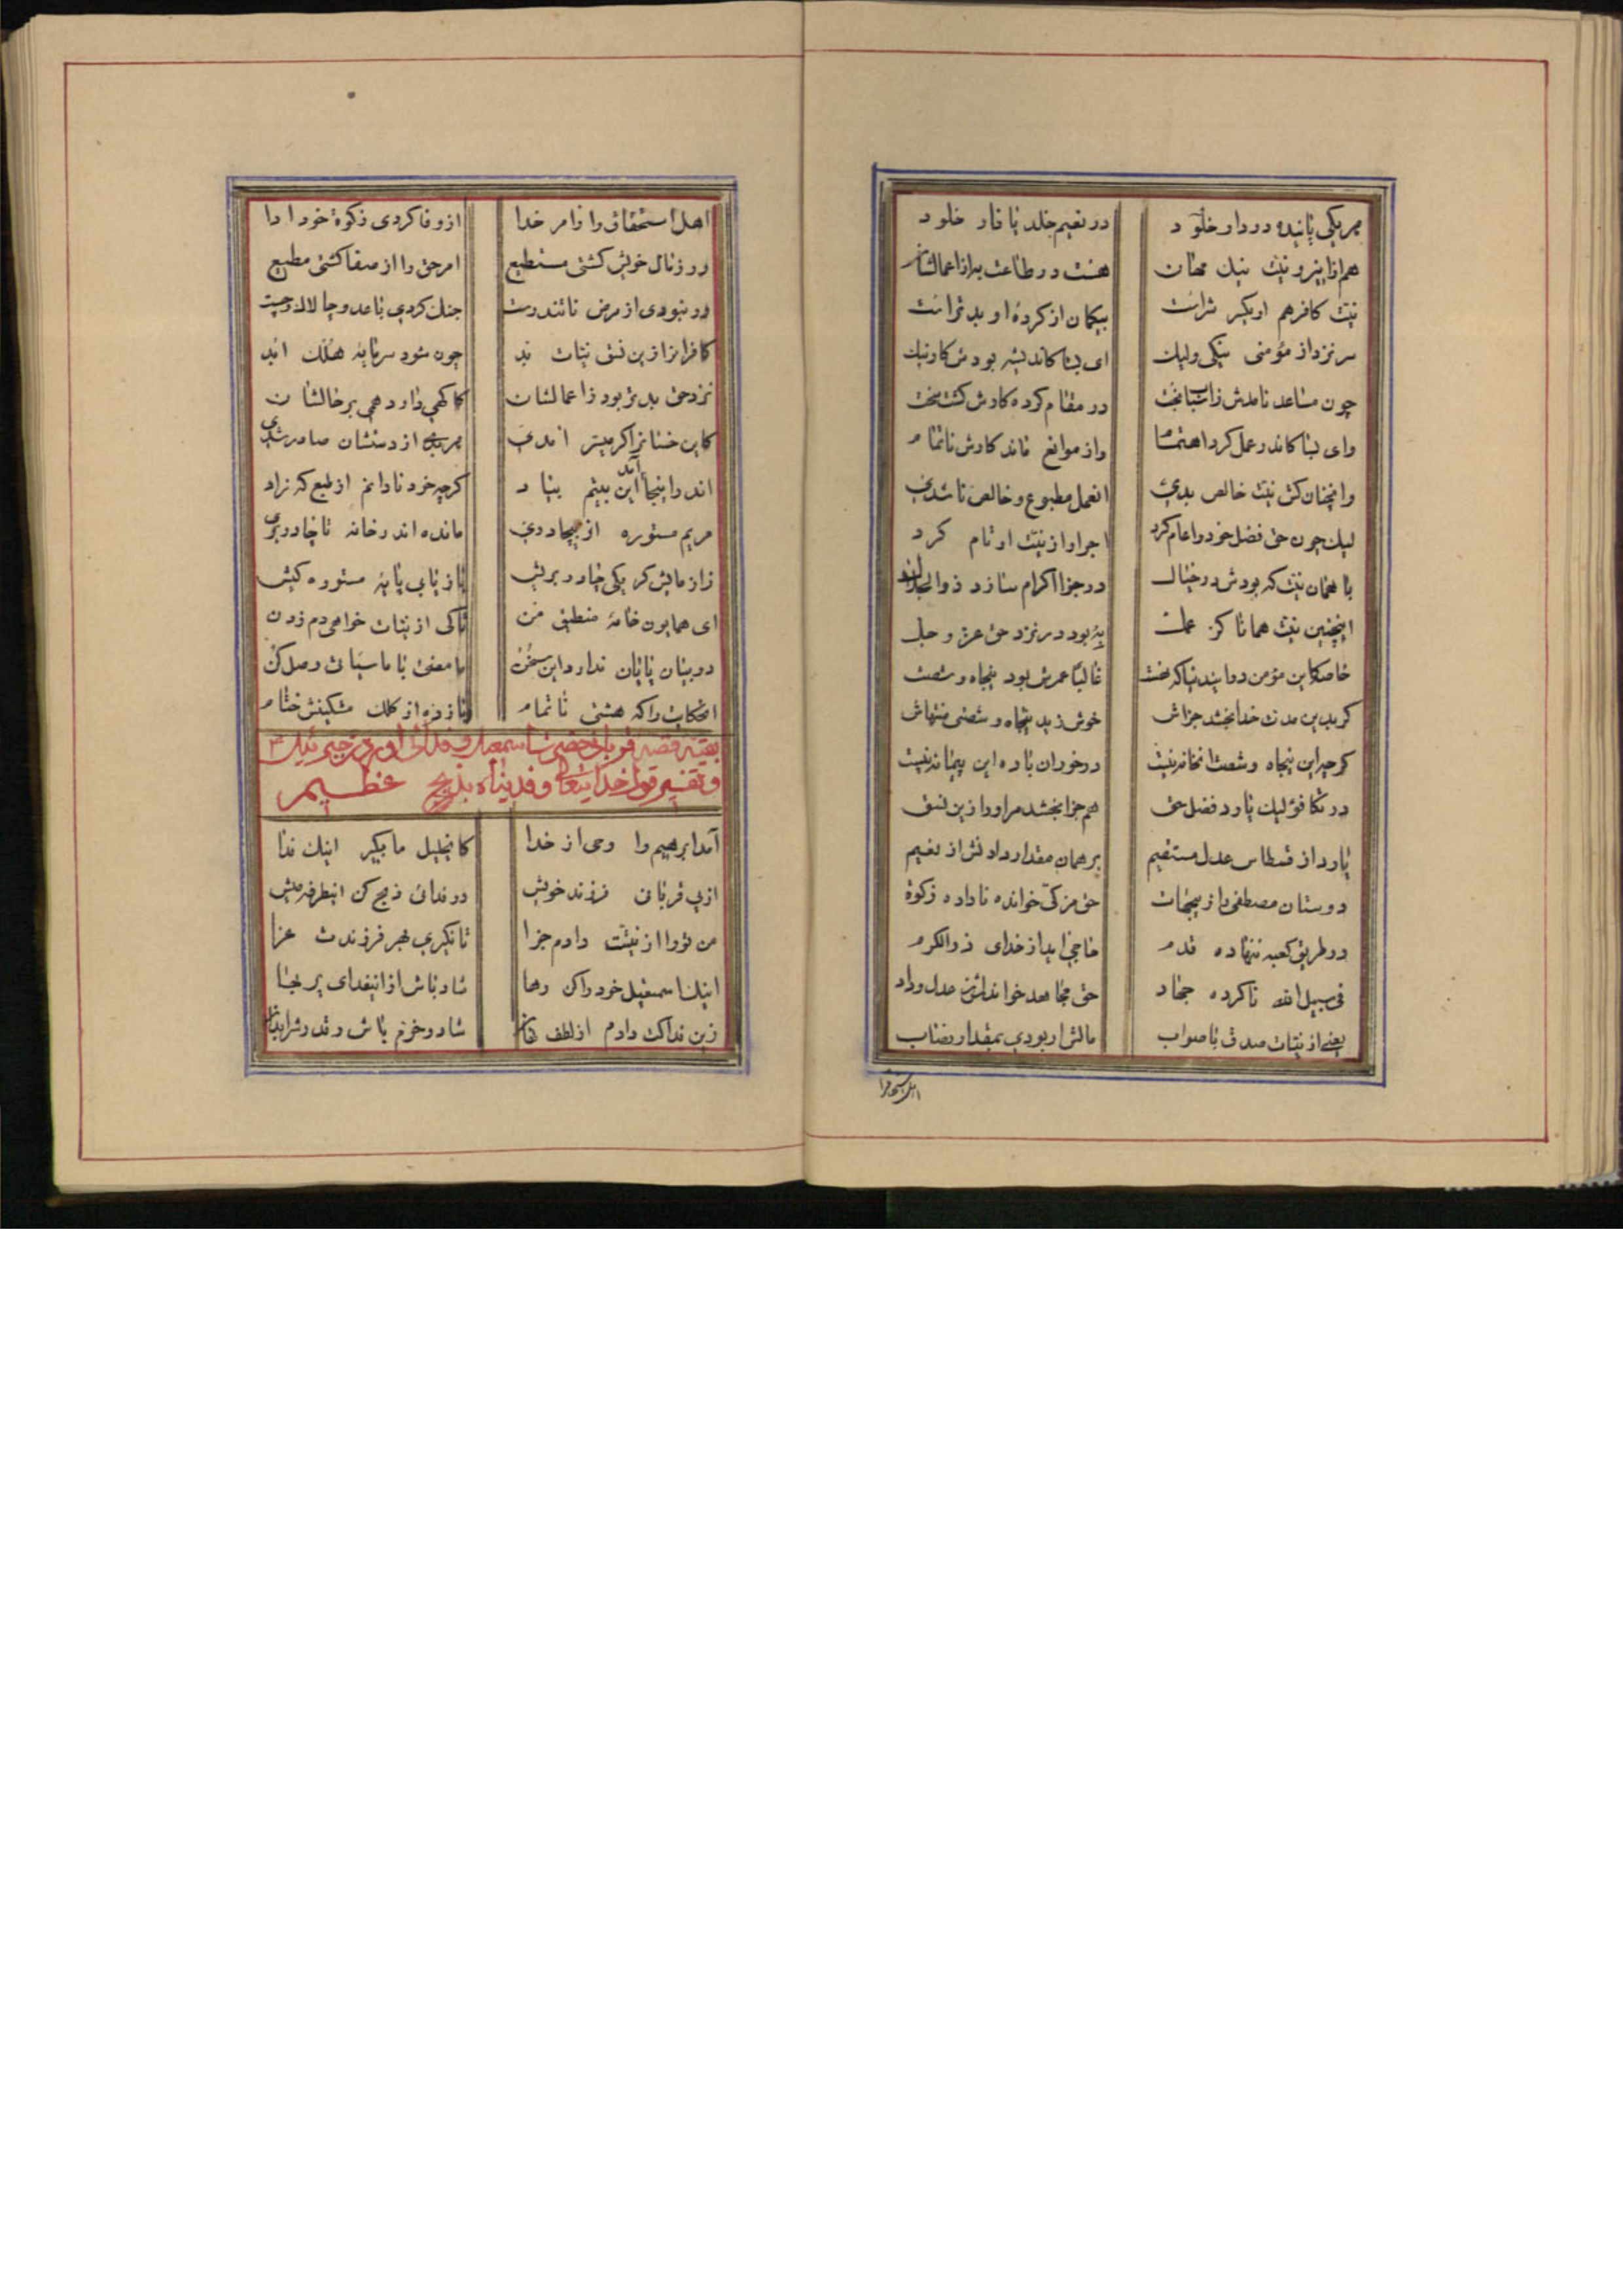 هریکی پاینده در دار خلود در نعیم خلد یا نار خلود
هم ازاینرو نیت نیک مهان هست در طاعت به از اعمالشان
نیت کافر هم او یکسر شر است بیکمان از کردهٔ او بدتر است
سر نزد از مؤمنی نیکی ولیک ای بسا کاندیشه بودش کار نیک
چون مساعد نامدش زاسباب بخت در مقام کرده کارش کشت سخت
وای بسا کاندر عمل کرد اهتمام واز موانع ماند کارش ناتمام
وانچنان کش نیت خالص بدی انعمل مطبوع و خالص ناشدی
لیک چون حق فضل خود را عام کرد اجر او از نیت او تام کرد
با همان نیت که بودش در خیال در جزا اکرام سازد ذوالجلال
اینچنین نیت همانا کز عمل به بود در نزد حق عز و جل
خاصه کاین مؤمن در این دنیا که هست غالبا عمرش بود پنجاه و شصت
کر بدین مدت خدا بخشد جزاش خوش زید پنجاه و شصتی منتهاش
کرچه این پنجاه و شصت انخانه نیست درخور ان باده این پیمانه نیست
در تکافؤ لیک یارد فضل حق هم جزا بخشد مر او را زین نسق
یارد از قسطاس عدل مستقیم بر همان مقدار دادنش از نعیم
دوستان مصطفی را از جهات حق مزکی خوانده ناداده زکوة
در طریق کعبه ننهاده قدم حاجی اید از خدای ذوالکرم
فی سبیل الله ناکرده جهاد حق مجاهد خواندش از عدل و داد
یعنی از نیات صدق با صواب مالش ار بودی بمقدار نصاب
اهل استحقاق را
اهل استحقاق را از امر خدا از وفا کردی زکوة خود ادا
ور ز مال خویش کشتی مستطیع امر حق را از صفا کشتی مطیع
ور نبودی از مرض ناتندرست جنک کردی با عدو چالاک و چست
کافرانرا زین نسق نیات بد چون شود سرمایه هلک ابد
نزد حق بدتر بود ز اعمالشان کاکهی دارد همی بر حالشان
کاین خسانرا کر میسر امدی هر بدی از دستشان صادر شدی
اندر اینجا این بیتم آمد بیاد کرچه خود نادانم از طبع که زاد
مریم مستوره از بیچادری مانده اندر خانه تا چادر بری
زازمایش کر یکی چادر بریش بازیابی پایه مستوره کیش
ای همایون خامهٔ منطیق من تا کی از نیات خواهی دم زدن
در بیان پایان ندارد این سخن مامضی با ما سیاتی وصل کن
انحکایت را که هشتی ناتمام باز ده از کلک مشکینش ختام
بقیه قصه قربانی حضرت اسمعیل و فدائی اوردن جبرئیل ع
و تفسیر قول خدایتعالی و فدیناه بذبح عظیم
آمد ابرهیم را وحی از خدا کایخلیل ما بکیر اینک فدا
ازپی قربانی فرزند خویش در فدائی ذبح کن اینطرفه میش
من تو را از نیتت دادم جزا تا نکیری بهر فرزندت عزا
اینک اسمعیل خود را کن رها شاد باش از اینفدای پر بها
زین فداکت دادم از لطف نهان شاد و خرم باش و قدرش را بدان